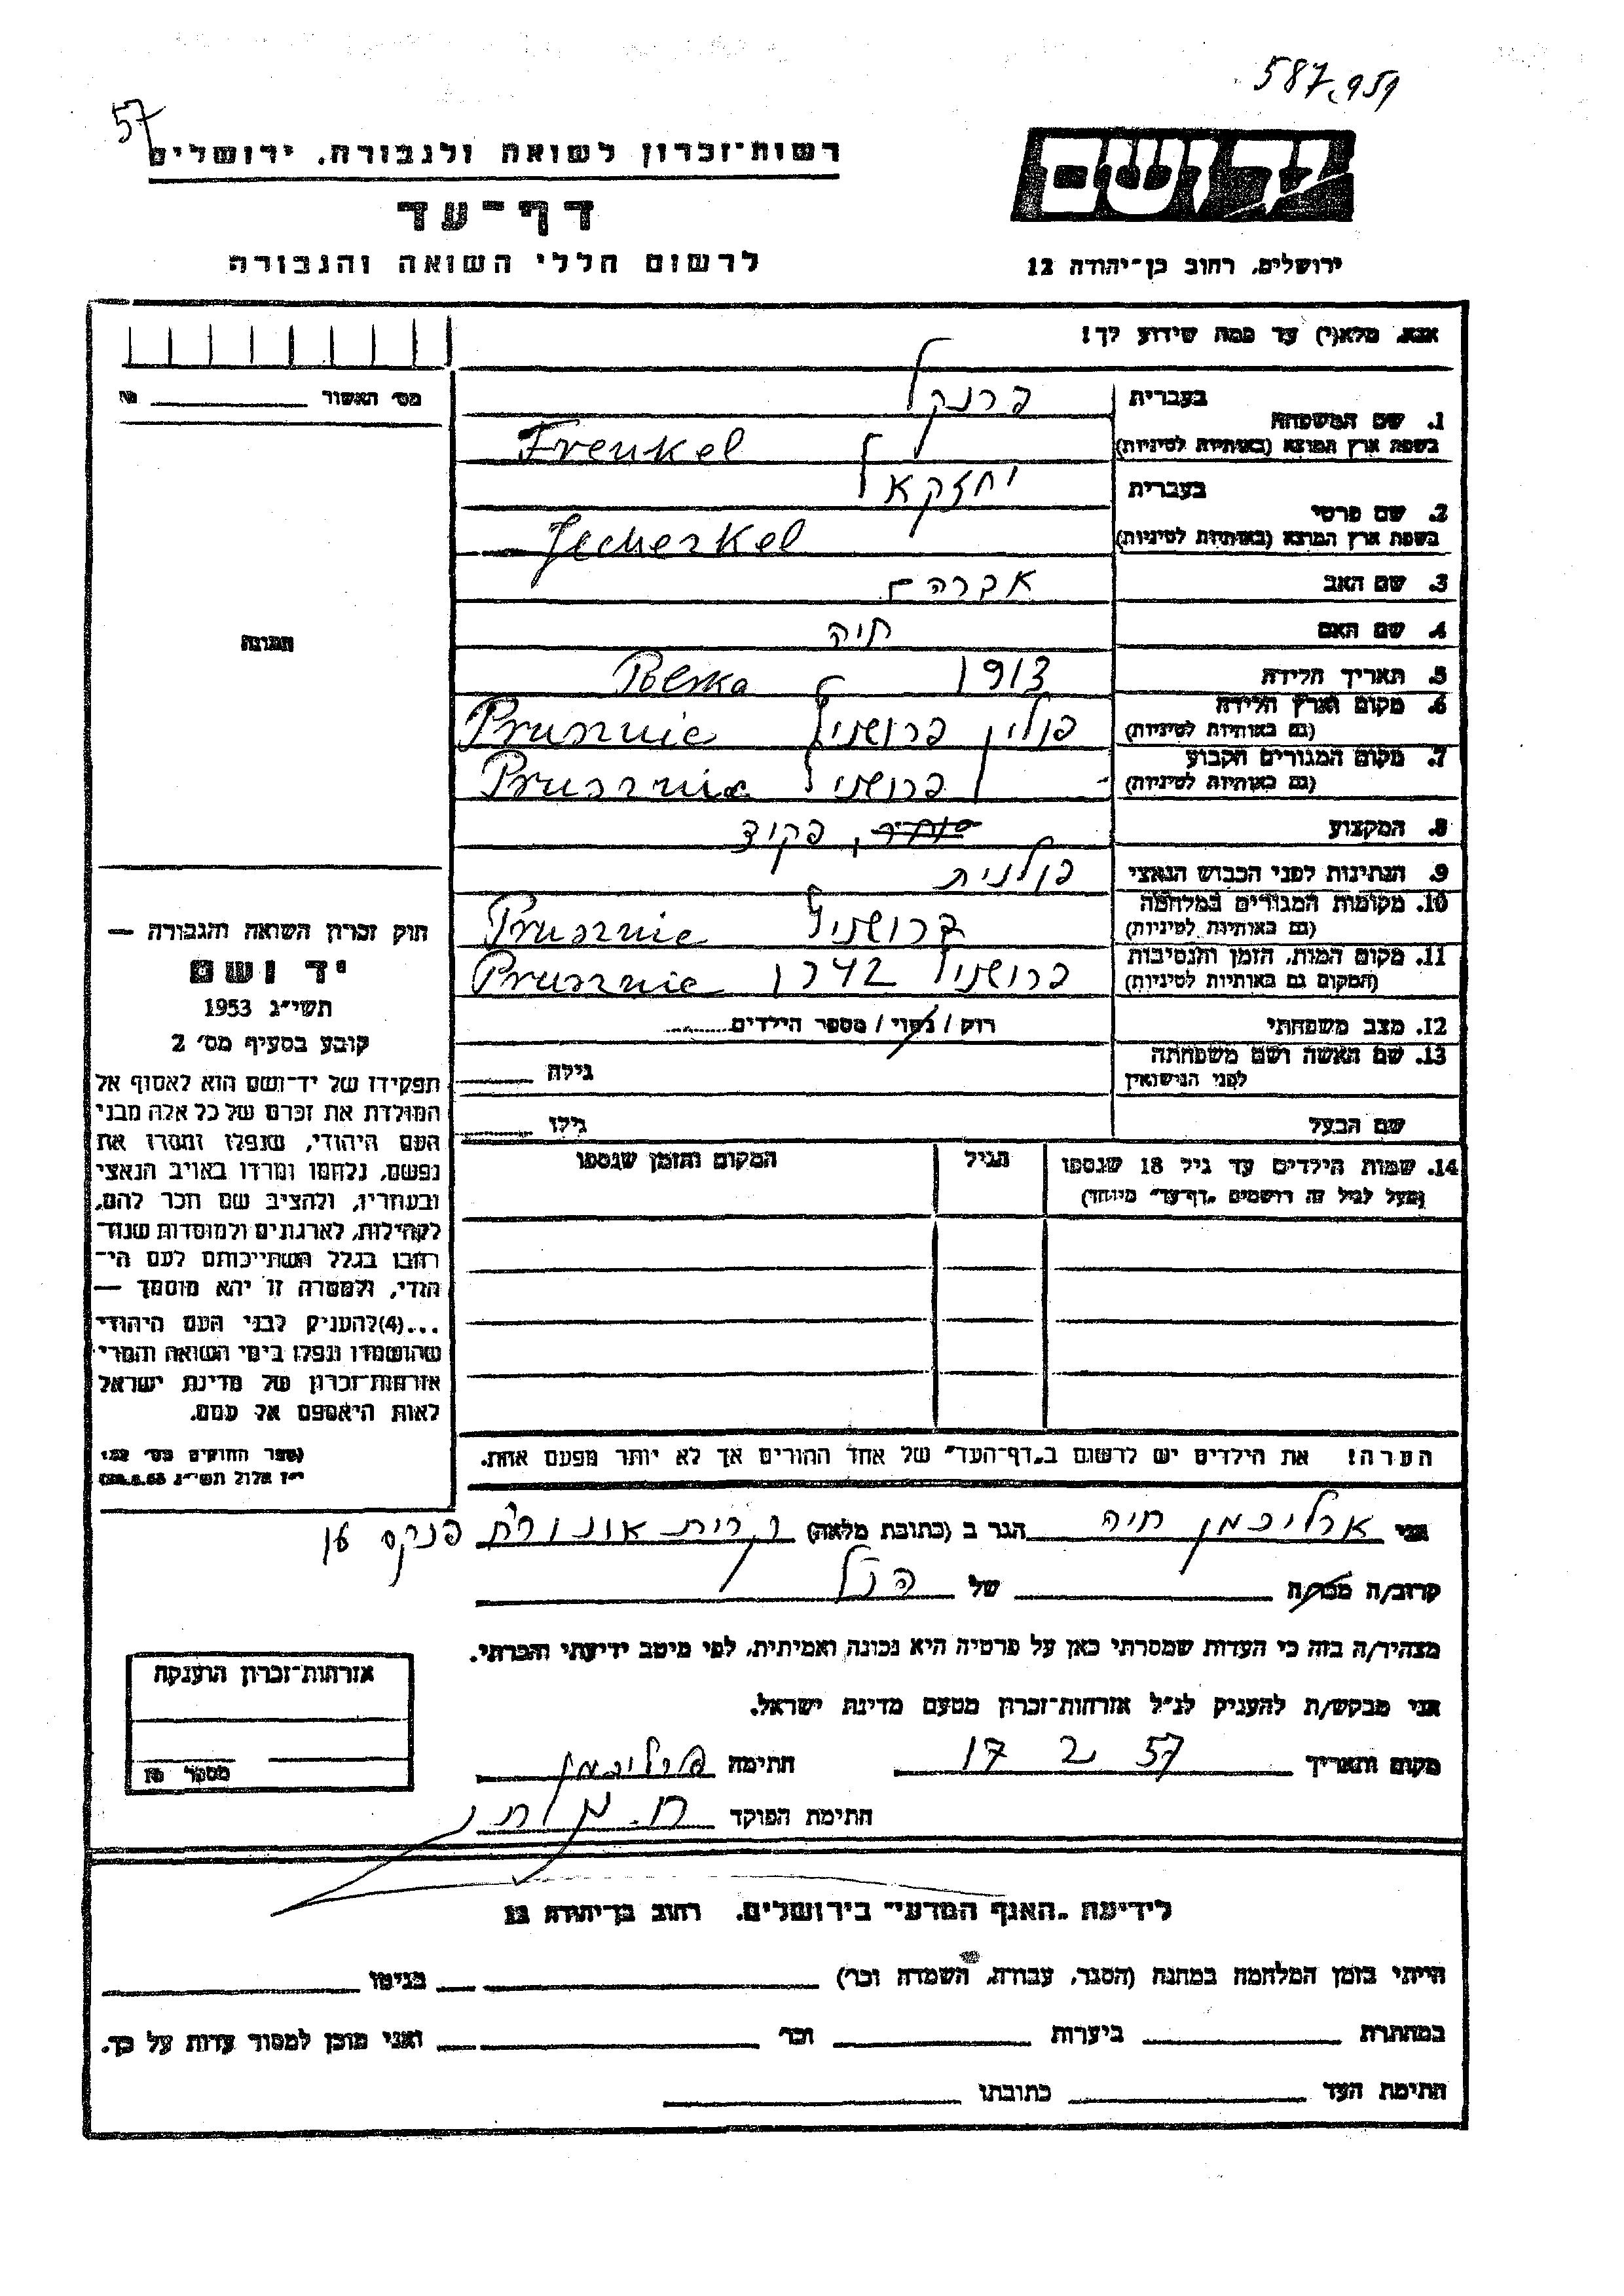 587,959
57
רשות־זכרון לשואה ולגבורה, ירושלים
ידושם
דף־עד
לרשום חללי השואה והגבורה
ירושלים, רחוב בן־יהודה 12
אנא, מלא(י) עד כמה שידוע לך!
מס׳ האשור
1. שם המשפחה בעברית פרנקל
בשפת ארץ המוצא (באותיות לטיניות) Frenkel
2. שם פרטי בעברית יחזקאל
בשפת ארץ המוצא (באותיות לטיניות)
3. שם האב אברהם
4. שם האם חיה
5. תאריך הלידה 1913
Polska
6. מקום וארץ הלידה (גם באותיות לטיניות) פולין
7. מקום המגורים הקבוע (גם באותיות לטיניות)
8. המקצוע סוחר, פקיד
9. הנתינות לפני הכבוש הנאצי פולנית
10. מקומות המגורים במלחמה (גם באותיות לטיניות)
11. מקום המות, הזמן והנסיבות (המקום גם באותיות לטיניות)
12. מצב משפחתי רוק / נשוי / מספר הילדים
13. שם האשה ושם משפחתה לפני הנישואין גילה
שם הבעל גילו
14. שמות הילדים עד גיל 18 שנספו (מעל לגיל זה רושמים „דף־עד״ מיוחד) הגיל המקום והזמן שנספו
הערה! את הילדים יש לרשום ב„דף־העד״ של אחד ההורים אך לא יותר מפעם אחת.
תמונה
חוק זכרון השואה והגבורה —
יד ושם
תשי״ג 1953
קובע בסעיף מס׳ 2
תפקידו של יד־ושם הוא לאסוף אל
המולדת את זכרם של כל אלה מבני
העם היהודי, שנפלו ומסרו את
נפשם, נלחמו ומרדו באויב הנאצי
ובעוזריו, ולהציב שם וזכר להם,
לקהילות, לארגונים ולמוסדות שנח־
רבו בגלל השתייכותם לעם הי־
הודי, ולמטרה זו יהא מוסמך —
...(4)להעניק לבני העם היהודי
שהושמדו ונפלו בימי השואה והמרי
אזרחות־זכרון של מדינת ישראל
לאות היאספם אל עמם.
(ספר החוקים מס׳ 132
י״ז אלול תשי״ג
אני ארליכמן חיה הגר ב (כתובת מלאה) קרית אונו רח פנקס
קרוב/ה מכר/ה של הנ״ל
מצהיר/ה בזה כי העדות שמסרתי כאן על פרטיה היא נכונה ואמיתית, לפי מיטב ידיעתי והכרתי.
אני מבקש/ת להעניק לנ״ל אזרחות־זכרון מטעם מדינת ישראל.
מקום ותאריך 17 2 57 חתימה ארליכמן
חתימת הפוקד
אזרחות־זכרון הוענקה
מספר
לידיעת „האגף המדעי״ בירושלים, רחוב בן־יהודה 12
הייתי בזמן המלחמה במחנה (הסגר, עבודה, השמדה וכו׳) בגיטו
במחתרת ביערות וכו׳ ואני מוכן למסור עדות על כך.
חתימת העד כתובתו